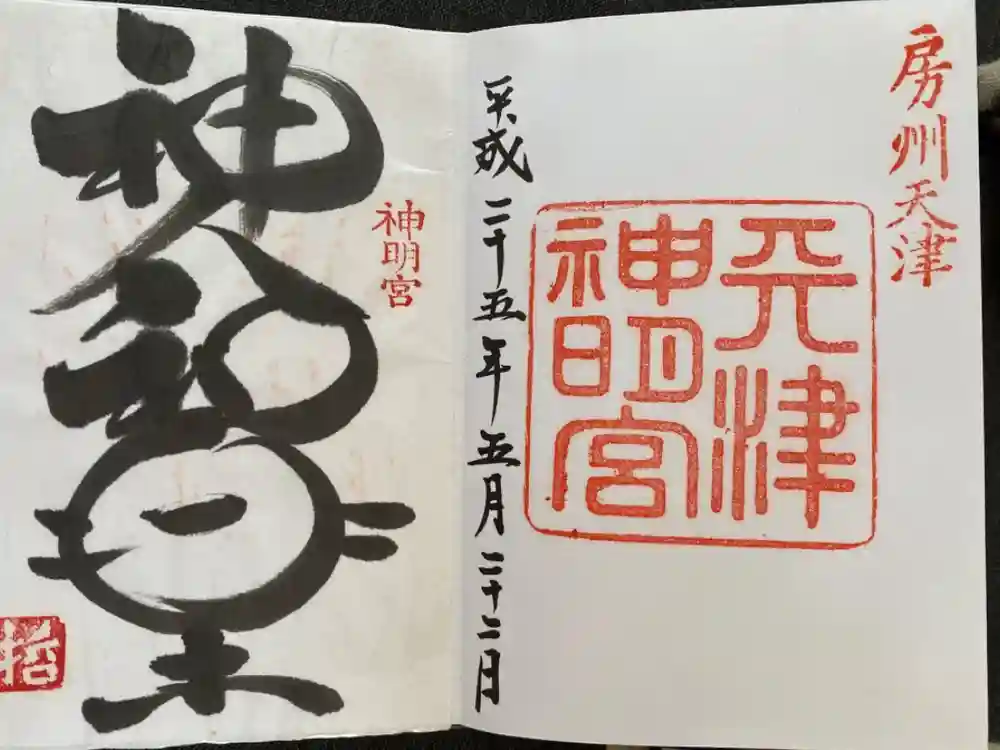 房州天津
天津
神明宮
平成二十五年五月二十二日
神明宮
神
哲